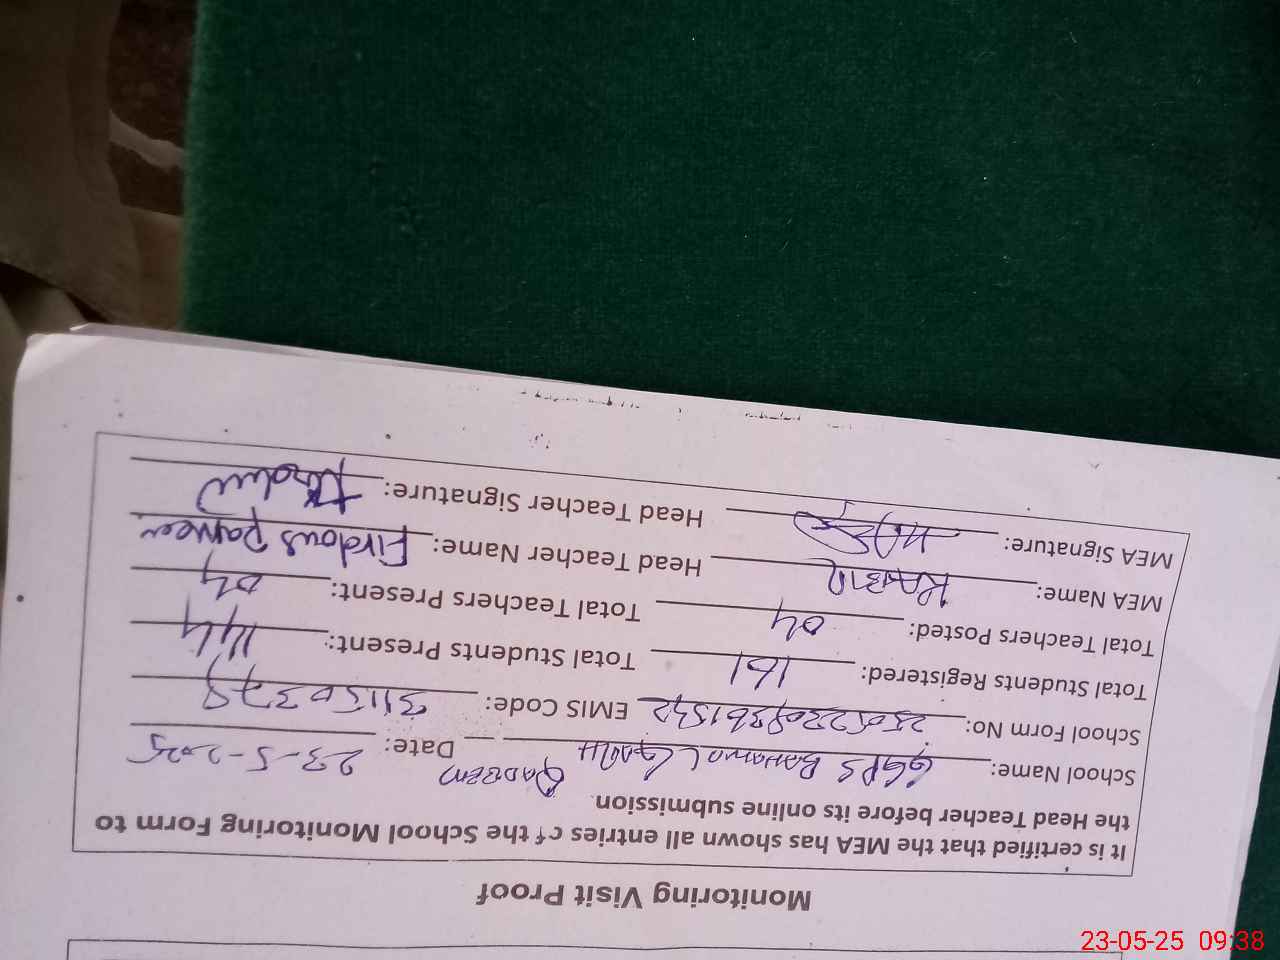 Monitoring Visit Proof
It is certified that the MEA has shown all entries of the School Monitoring Form to
the Head Teacher before its online submission.
School Name: GGPS Bahawal Garh Qadeem Date: 23-5-2025
School Form No: EMIS Code: 31150378
Total Students Registered: 161 Total Students Present: 144
Total Teachers Posted: 04 Total Teachers Present: 04
MEA Name: Head Teacher Name: Firdous Parveen
MEA Signature: Head Teacher Signature: Firdous
23-05-25 09:38